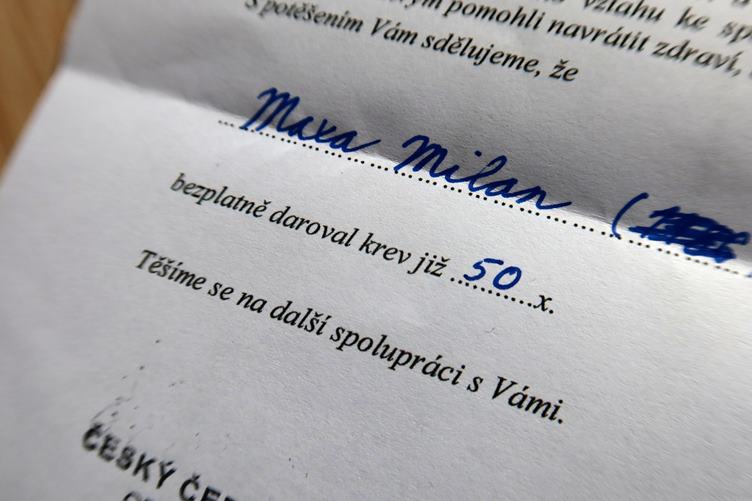 vztahu ke
pomohli navrátit zdraví,
S potěšením Vám sdělujeme, že
Maxa Milan (
bezplatně daroval krev již 50 x.
Těšíme se na další spolupráci s Vámi.
ČESKÝ